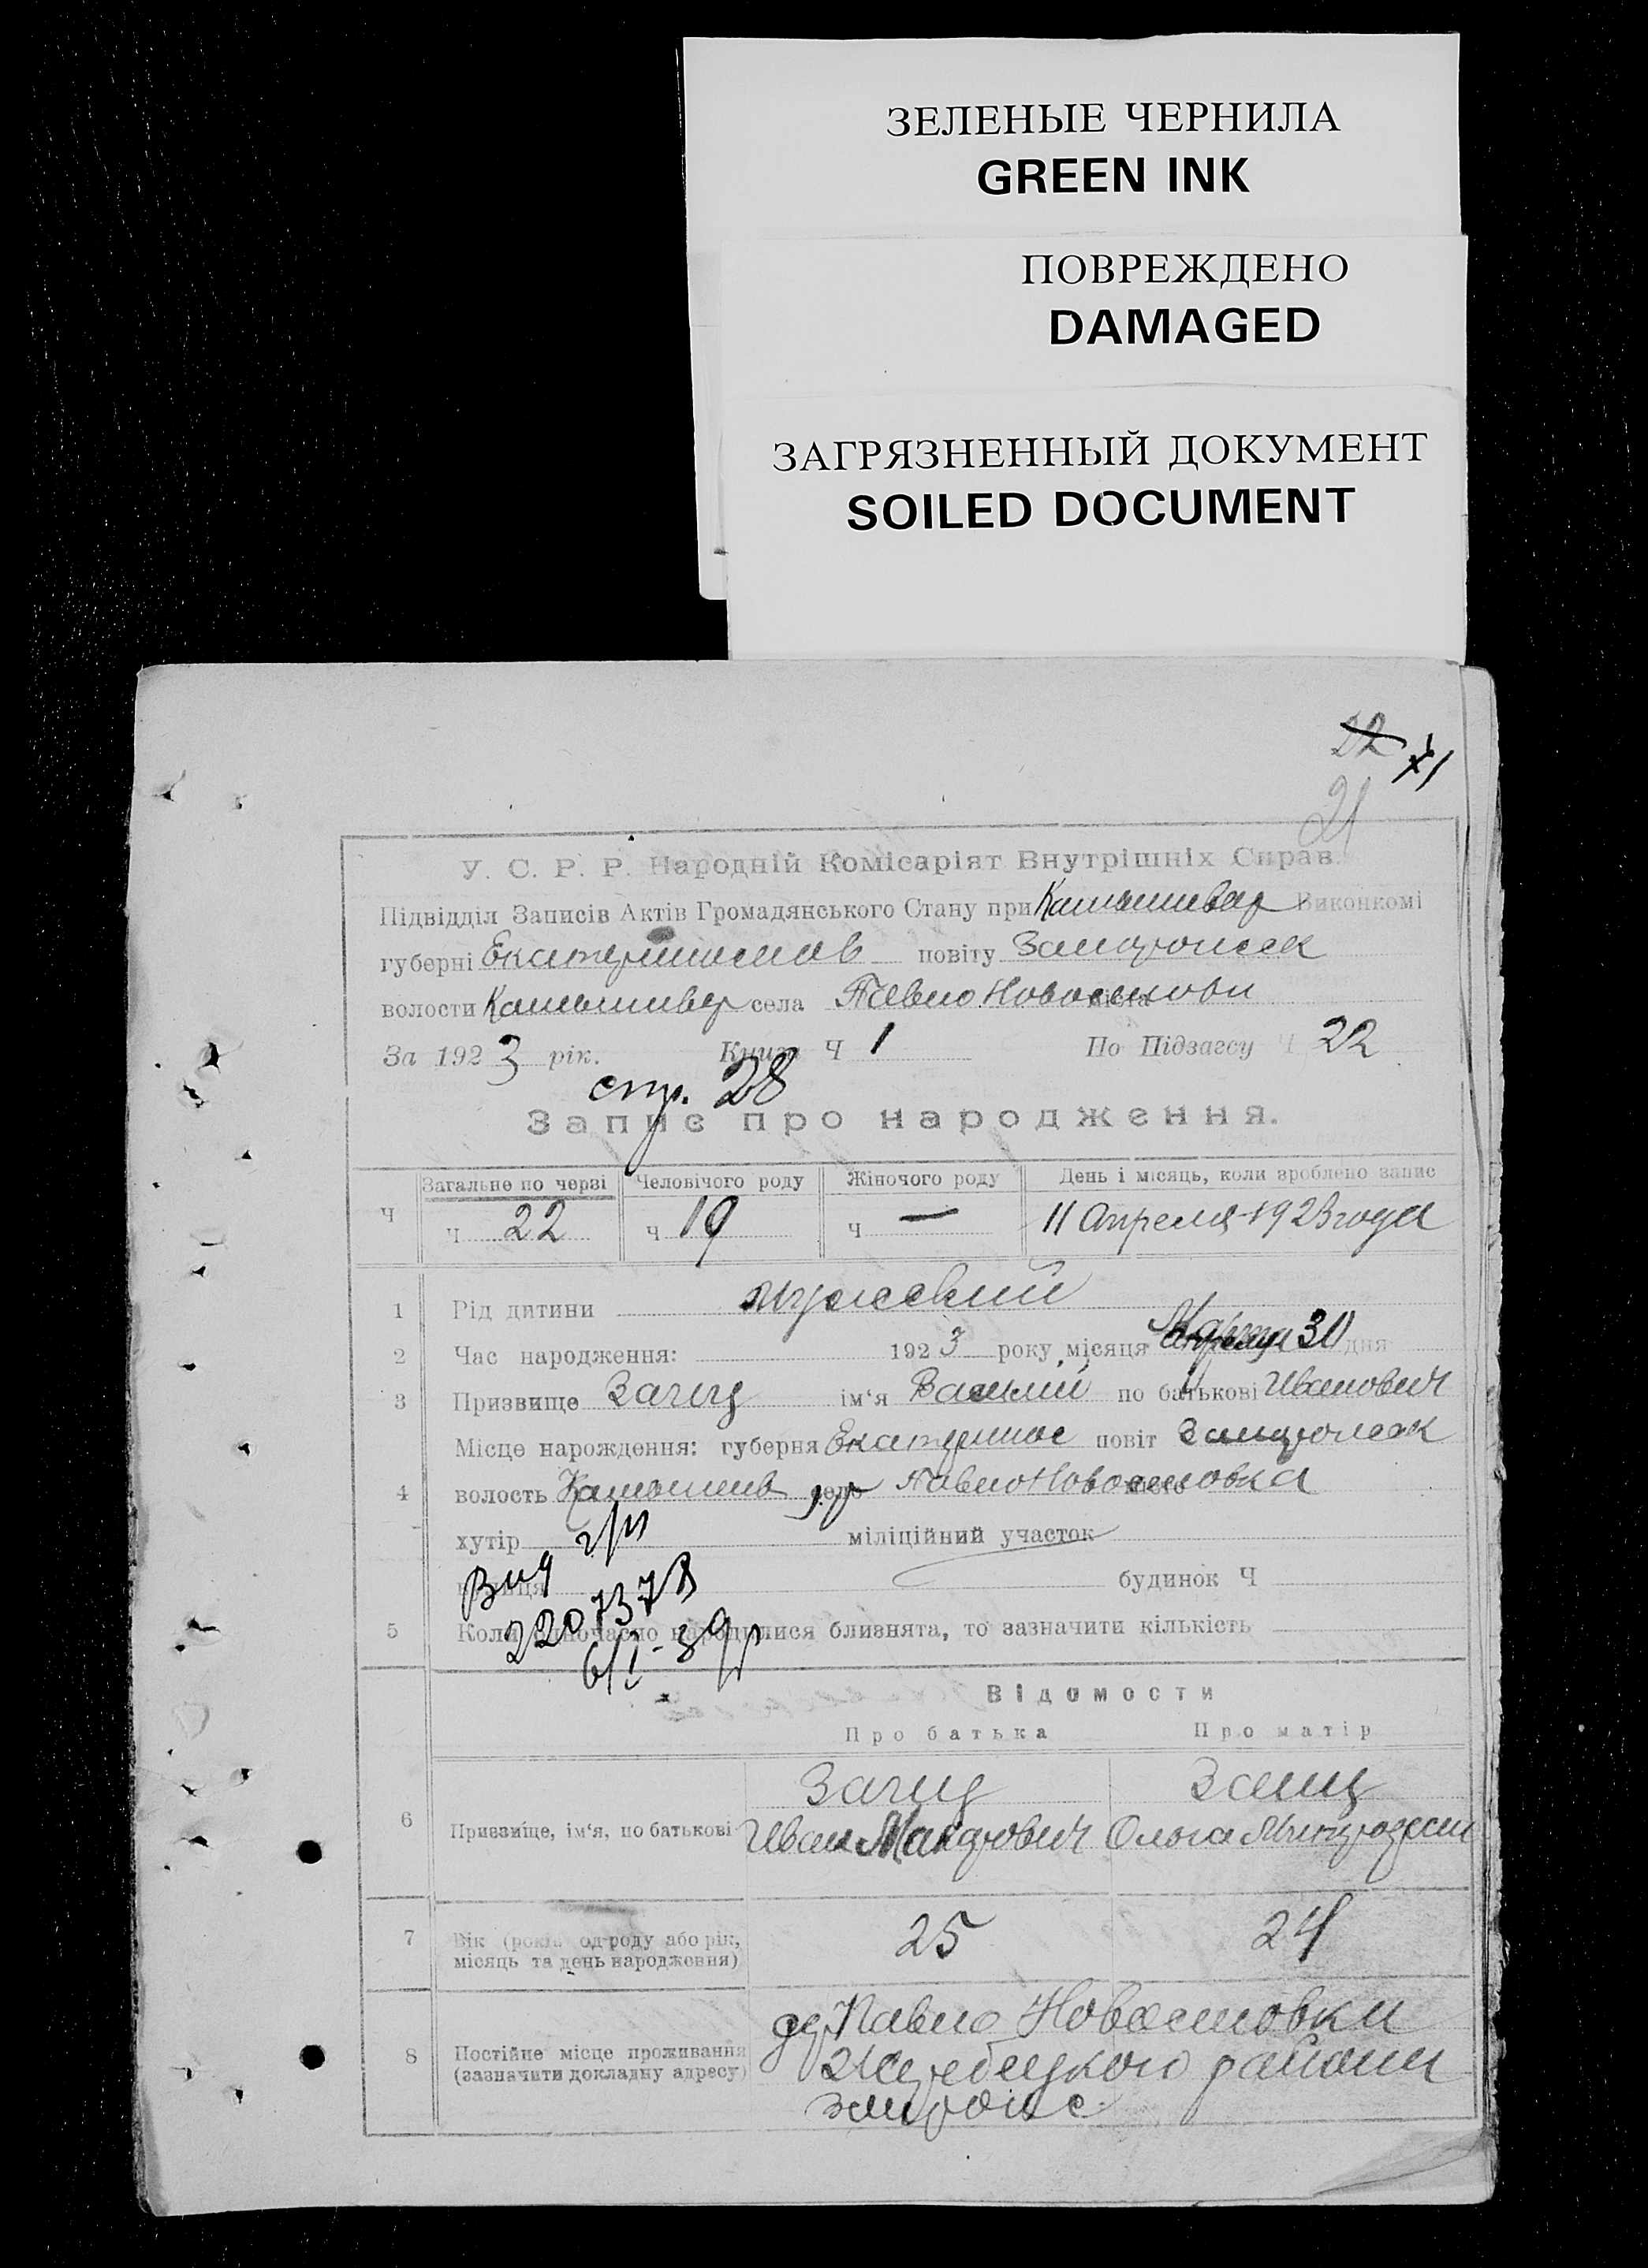 ЗЕЛЕНЫЕ ЧЕРНИЛА
GREEN INK
ПОВРЕЖДЕНО
DAMAGED
ЗАГРЯЗНЕННЫЙ ДОКУМЕНТ
SOILED DOCUMENT
22
21
У. С. Р. Р. Народній Комісаріят Внутрішніх Справ.
Підвідділ Записів Актів Громадянського Стану при Виконкомі
губерні Екатеринослав повіту
волости села Павло Новоселовки
За 1923 рік. Книга Ч 1 По Підзагсу Ч 22
стр. 28
Запис про народження.
Загальне по черзі Человічого роду Жіночого роду День і місяць, коли зроблено запис
Ч Ч 22 Ч 19 Ч — 11 Апреля 1923 года
1 Рід дитини мужской
2 Час народження: 1923 року місяця Марта 30 дня
3 Призвище Заяц ім'я Василий по батькові Иванович
Місце народження: губерня Екатеринос повіт
4 волость село Павло Новоселовка
хутір міліційний участок
будинок Ч
5 Коли одночасно народилися близнята, то зазначити кількість
Відомости
Про батька Про матір
Заяц Заяц
6 Призвище, ім'я, по батькові Иван Ольга
7 Вік (років од-роду або рік, 25 24
місяць та день народження)
Павло Новоселовки
8 Постійне місце проживання Жеребецкого района
(зазначити докладну адресу)